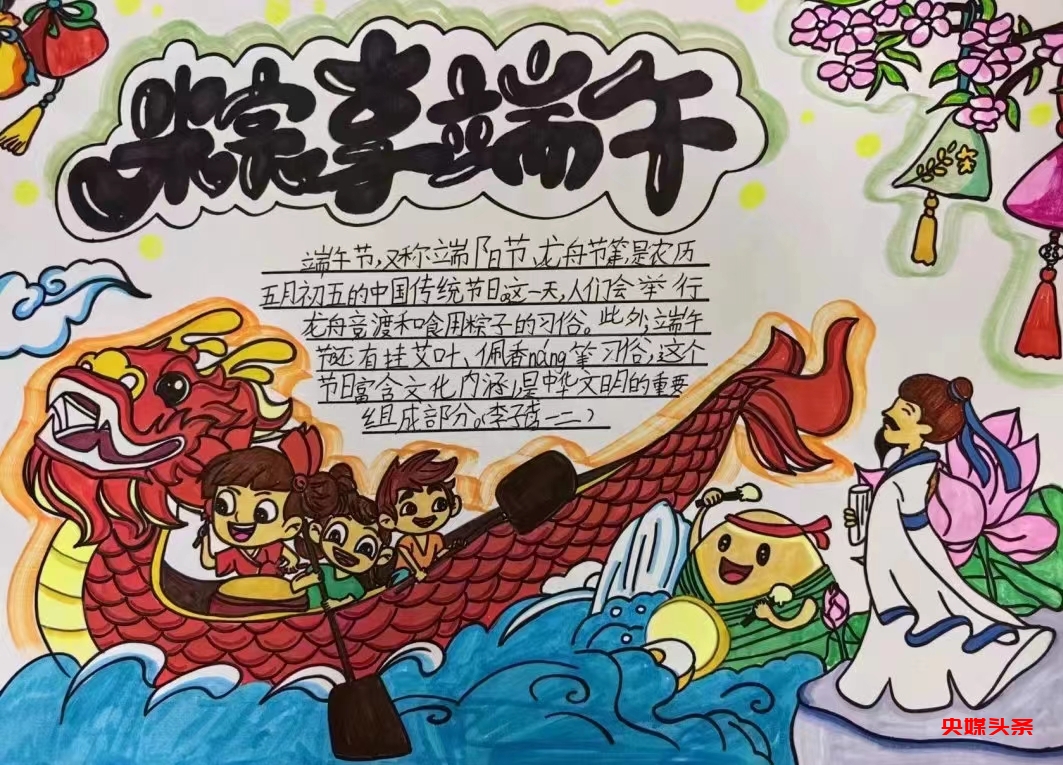 粽享端午
端午节，又称端阳节、龙舟节等，是农历
五月初五的中国传统节日。这一天，人们会举行
龙舟竞渡和食用粽子的习俗。此外，端午
节还有挂艾叶、佩香náng等习俗，这个
节日富含文化内涵，是中华文明的重要
组成部分。（李子一二）
央媒头条